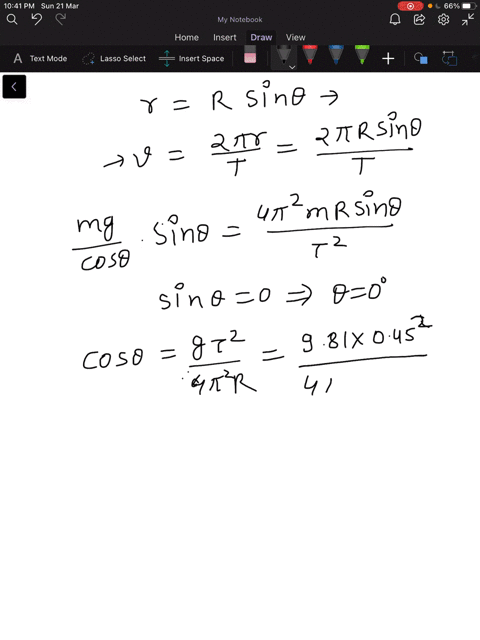 10:41 PM Sun 21 Mar
66%
My Notebook
Home Insert Draw View
Text Mode Lasso Select Insert Space
r = R sinθ →
→ v = 2πr/T = 2πR sinθ/T
mg/cosθ · sinθ = 4π²mR sinθ/T²
sinθ = 0 ⇒ θ = 0°
cosθ = gT²/4π²R = 9.81 × 0.45²/4